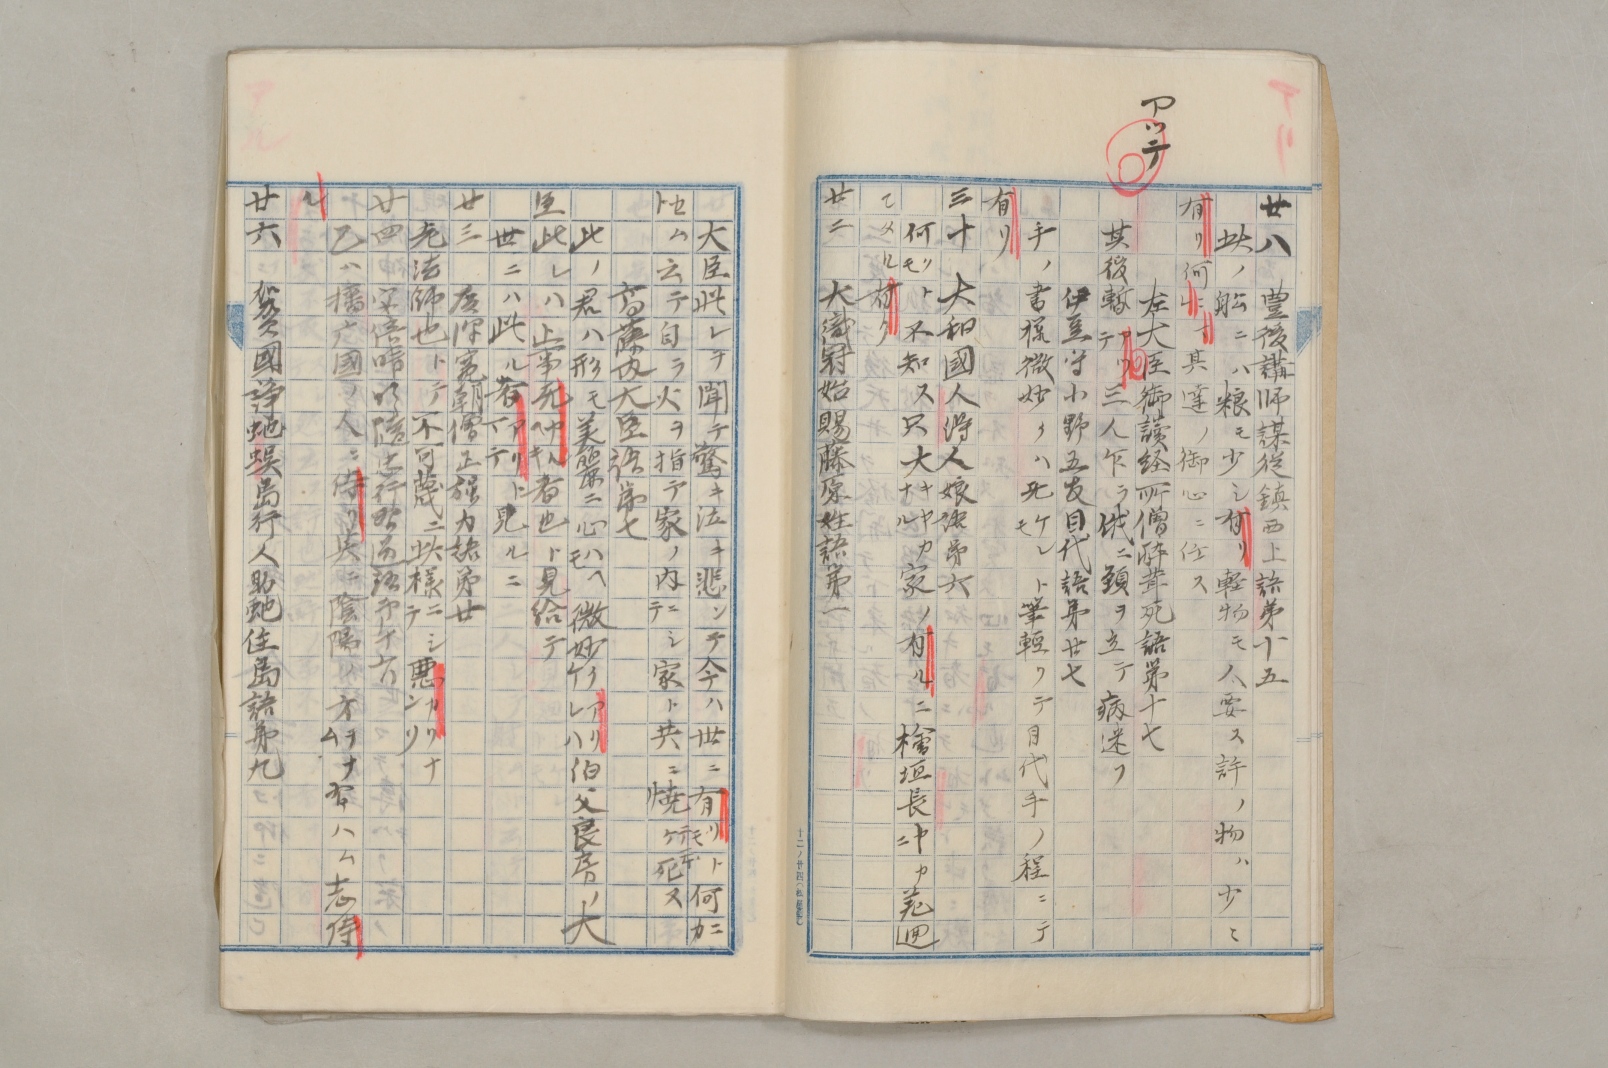 アッテ
廿八 豊後講師謀従鎮西上語第十五
此ノ船ニハ粮モ少シ有リ軽物モ人要ス許ノ物ハ少ミ
有リ何ニモ其達ノ御心ニ任ス
左大臣御読経所僧酔茸死語第十七
其後暫アリテ三人乍ラ俄ニ頸ヲ立テ病迷フ
伊豆守小野五友目代語第廿七
手ノ書様微妙クハ死ケレトモ筆軽クテ目代手ノ程ニテ
有リ
三十 大和國人得人娘語第六
何リトモ不知ス只大キヤカナル家ノ有ルニ檜垣長
メル有ク
廿二 大織冠始賜藤原姓語第一
大臣此レヲ聞テ驚キ泣キ悲ンテ今ハ世ニ有リトモ何カニ
トセム云テ自ラ火ヲ指テ家ノ内ニシテ家ト共ニ焼ケ死ス
高藤内大臣語第七
此ノ君ハ形モ美麗ニ心ハヘモ微妙クアリケレハ伯父良房ノ大
臣此レハ止事死 者也ト見給テ
世ニハ此ル者アリテ ト見ルニ
廿三 廣澤寛朝僧正強力語第廿
老法師也トテ不可蔑ニ此様ニシテ悪カリナンリ
廿四
乙ハ播广國ノ人ニ侍リ 陰陽ノ方ヲナム習ハム志侍
ル
廿六 加賀國諍蛇蜈島行人助蛇住島語第九